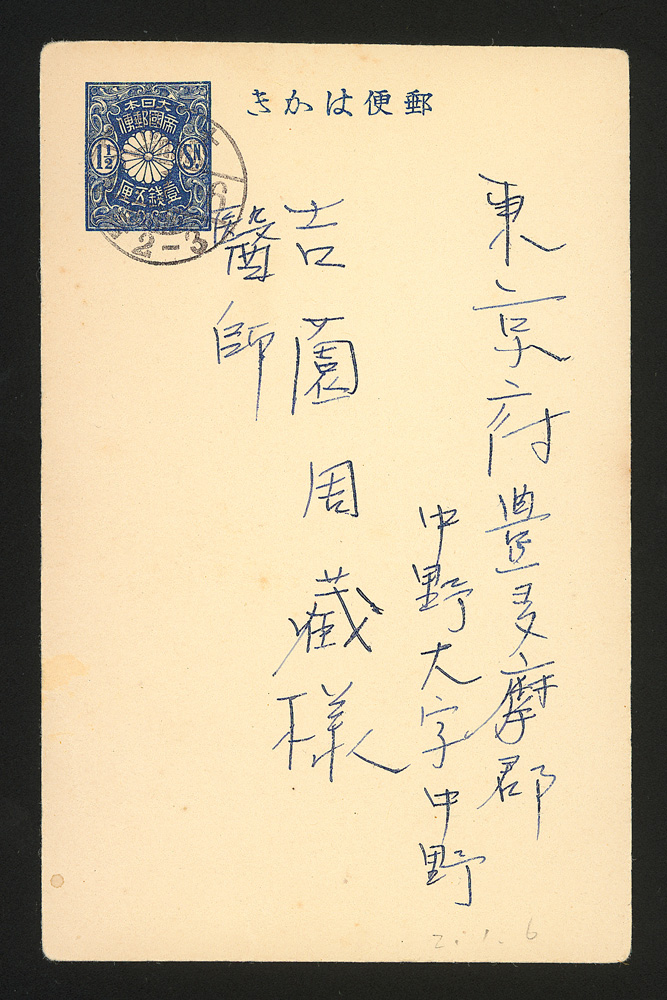 郵便はかき
大日本
帝國郵便
1½
SN.
壹錢五厘
6
2-3
東京府豊多摩郡
中野大字中野
吉薗周蔵様
醫師
2.1.6